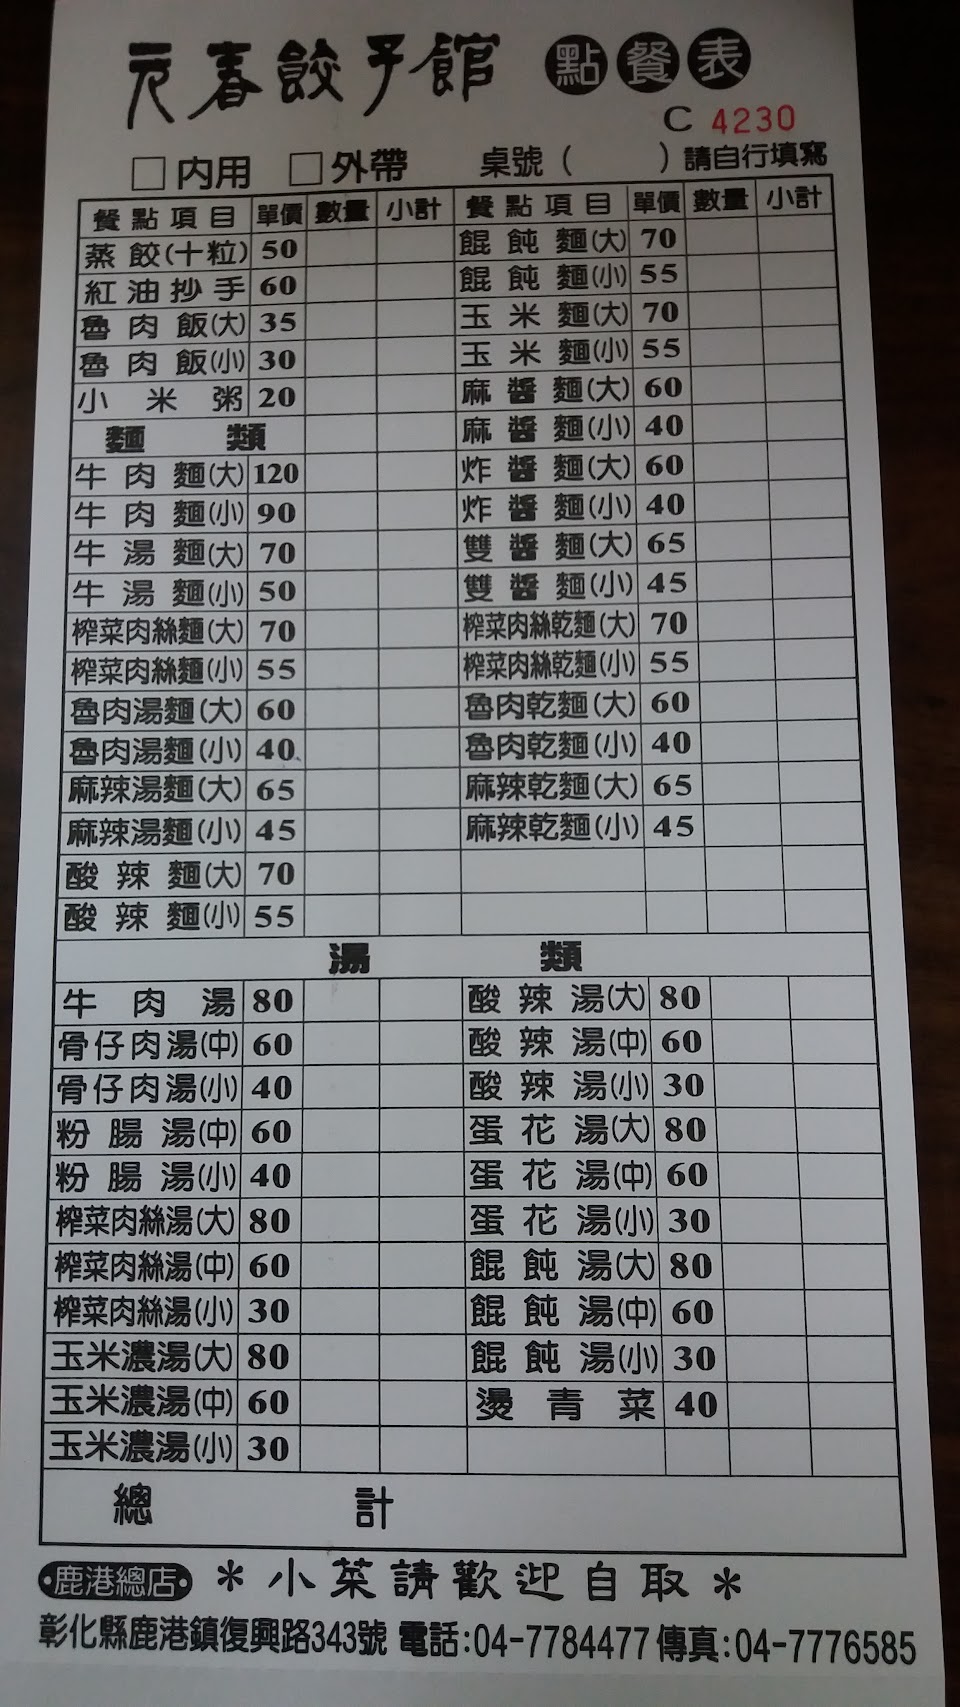 元春餃子館 點餐表
C 4230
□內用 □外帶 桌號( )請自行填寫
餐點項目 單價 數量 小計 餐點項目 單價 數量 小計
蒸餃(十粒) 50 餛飩麵(大) 70
紅油抄手 60 餛飩麵(小) 55
魯肉飯(大) 35 玉米麵(大) 70
魯肉飯(小) 30 玉米麵(小) 55
小米粥 20 麻醬麵(大) 60
麵類 麻醬麵(小) 40
牛肉麵(大) 120 炸醬麵(大) 60
牛肉麵(小) 90 炸醬麵(小) 40
牛湯麵(大) 70 雙醬麵(大) 65
牛湯麵(小) 50 雙醬麵(小) 45
榨菜肉絲麵(大) 70 榨菜肉絲乾麵(大) 70
榨菜肉絲麵(小) 55 榨菜肉絲乾麵(小) 55
魯肉湯麵(大) 60 魯肉乾麵(大) 60
魯肉湯麵(小) 40 魯肉乾麵(小) 40
麻辣湯麵(大) 65 麻辣乾麵(大) 65
麻辣湯麵(小) 45 麻辣乾麵(小) 45
酸辣麵(大) 70
酸辣麵(小) 55
湯類
牛肉湯 80 酸辣湯(大) 80
骨仔肉湯(中) 60 酸辣湯(中) 60
骨仔肉湯(小) 40 酸辣湯(小) 30
粉腸湯(中) 60 蛋花湯(大) 80
粉腸湯(小) 40 蛋花湯(中) 60
榨菜肉絲湯(大) 80 蛋花湯(小) 30
榨菜肉絲湯(中) 60 餛飩湯(大) 80
榨菜肉絲湯(小) 30 餛飩湯(中) 60
玉米濃湯(大) 80 餛飩湯(小) 30
玉米濃湯(中) 60 燙青菜 40
玉米濃湯(小) 30
總計
•鹿港總店• *小菜請歡迎自取*
彰化縣鹿港鎮復興路343號 電話:04-7784477 傳真:04-7776585